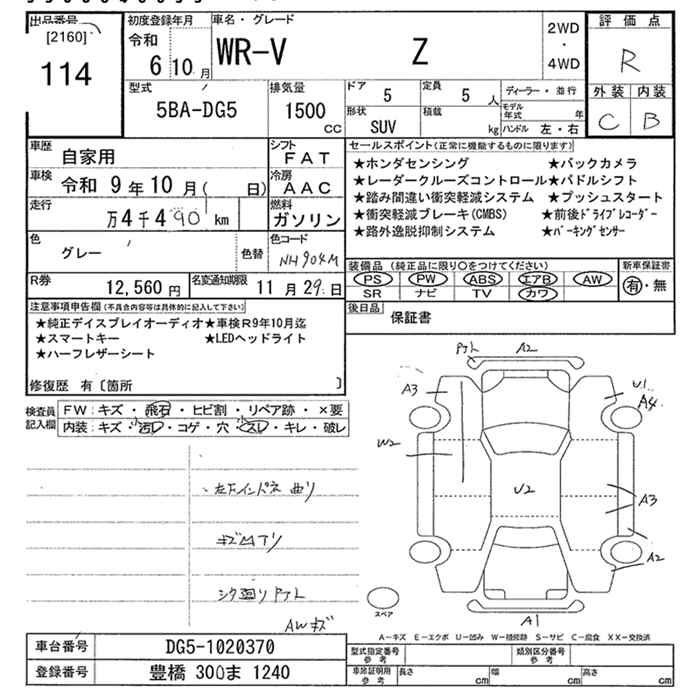 出品番号
[2160]
114
初度登録年月
令和
6 10 月
車名・グレード
WR-V Z
2WD
・
4WD
評価点
R
外装 内装
C B
型式
5BA-DG5
排気量
1500
cc
ドア
5
定員
5 人
形状
SUV
積載
kg
ディーラー・並行
モデル年式 年
ハンドル 左・右
車歴
自家用
シフト
FAT
車検 令和 9年10月( 日)
冷房
AAC
走行
万4千490 km
燃料
ガソリン
色
グレー
色替
色コード
NH904M
R券
12,560 円
名変通知期限
11 月 29 日
セールスポイント(正常に機能するものに限ります)
★ホンダセンシング ★バックカメラ
★レーダークルーズコントロール★パドルシフト
★踏み間違い衝突軽減システム ★プッシュスタート
★衝突軽減ブレーキ(CMBS) ★前後ドライブレコーダー
★路外逸脱抑制システム ★パーキングセンサー
装備品(純正品に限り○をつけてください)
PS PW ABS エアB AW
SR ナビ TV カワ
新車保証書
有・無
後日品
保証書
注意事項申告欄(不具合内容等は具体的に記入して下さい)
★純正デイスプレイオーディオ★車検R9年10月迄
★スマートキー ★LEDヘッドライト
★ハーフレザーシート
修復歴 有〔箇所 〕
検査員記入欄
FW:キズ・飛石・ヒビ割・リペア跡・×要
内装:キズ・小汚レ・コゲ・穴・小スレ・キレ・破レ
左下インパネ曲り
キズ凹アリ
シタ廻りアト
AWキズ
A2
A3
U1
A4
W2
U2
A3
A2
A1
スペア
A-キズ E-エクボ U-凹み W-補修跡 S-サビ C-腐食 XX-交換済
車台番号 DG5-1020370
登録番号 豊橋 300ま 1240
型式指定番号
参考
類別区分番号
参考
車庫証明用
参考
長さ cm 幅 cm 高さ cm